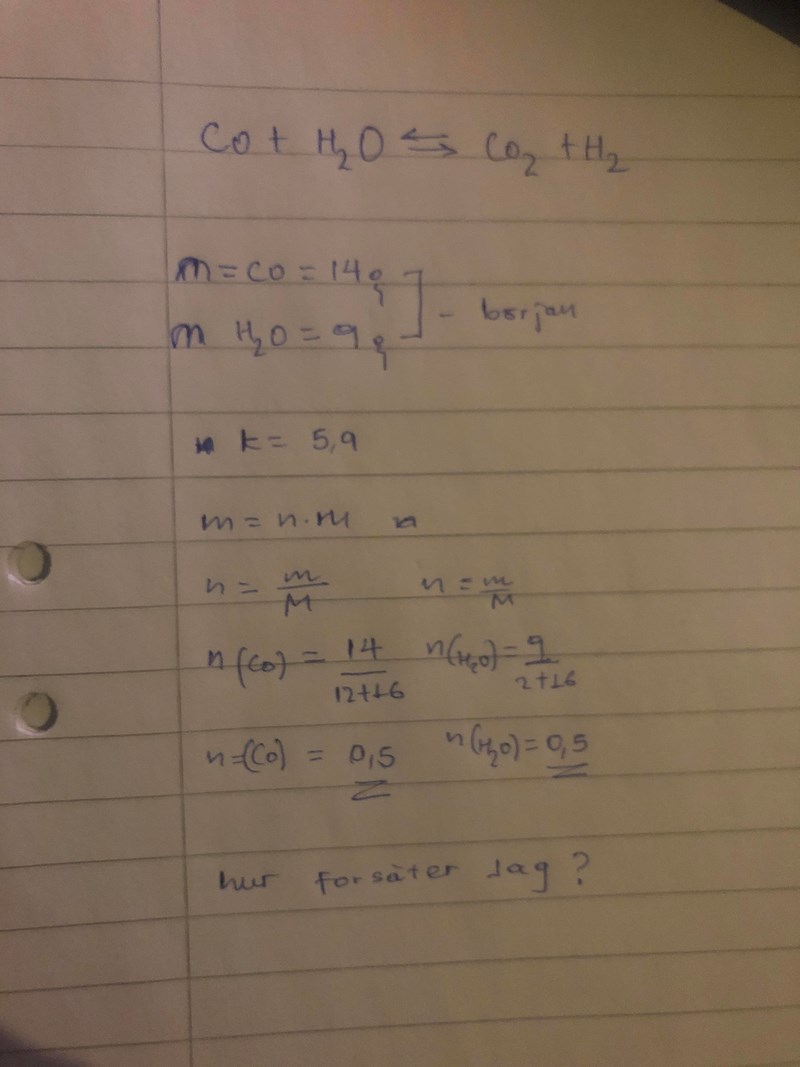 Co + H₂O ⇆ Co₂ + H₂
m = CO = 14g
m H₂O = 9g
- borjan
k = 5,9
m = n·M n
n = m/M n = m/M
n(Co) = 14/12+16 n(H₂O) = 9/2+16
n=(Co) = 0,5 n(H₂O) = 0,5
hur forsäter Jag?